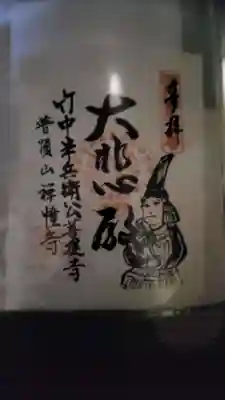 奉拝
大悲殿
竹中半兵衛公菩提寺
普賢山禅幢寺